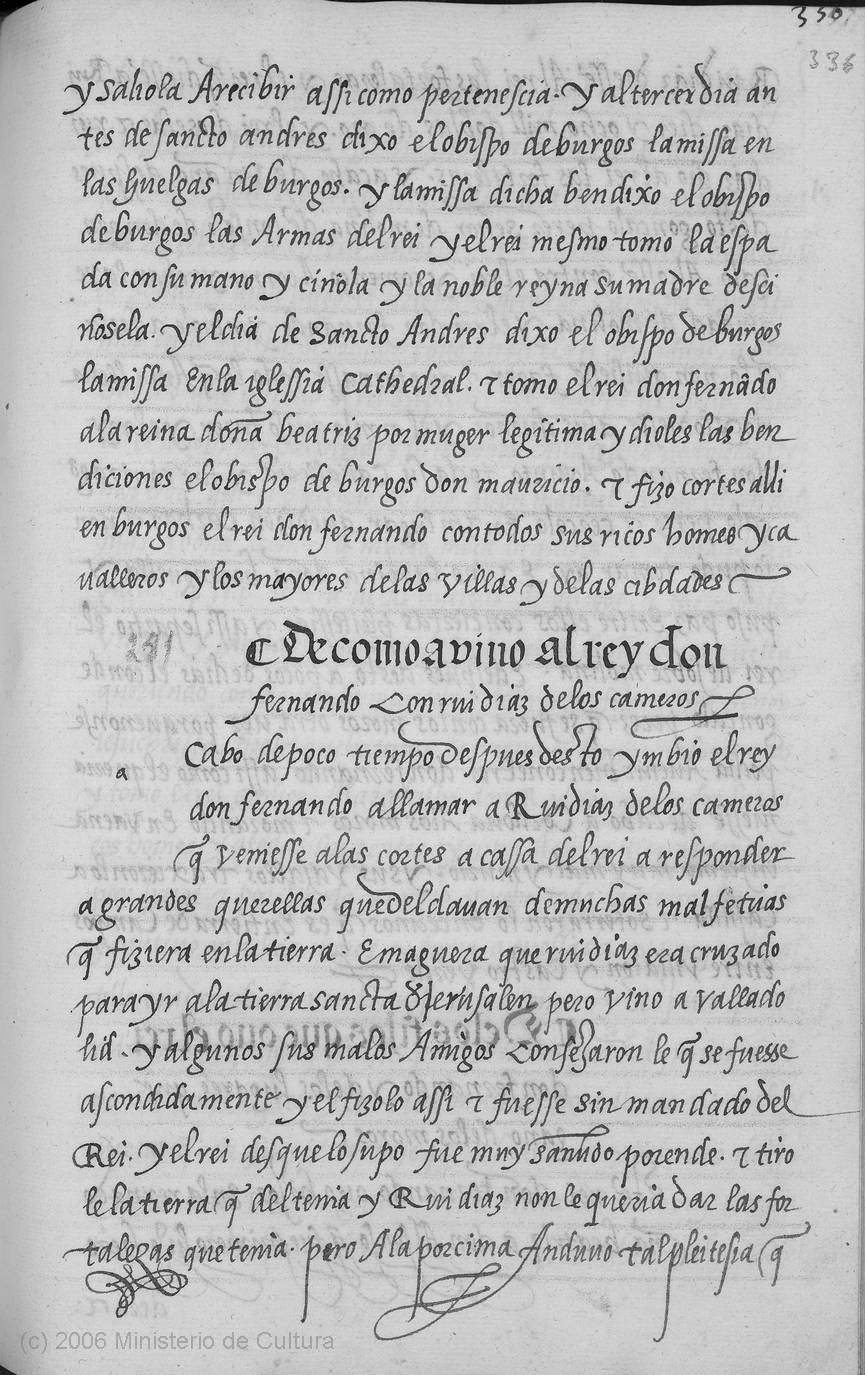 350.
336
y saliola A recibir assi como pertenescia. y al tercer dia an
tes de sancto andres dixo el obispo de burgos la missa en
las huelgas de burgos. y la missa dicha bendixo el obispo
de burgos las Armas del rei y el rei mesmo tomo la espa
da con su mano y ciñola y la noble reyna su madre desci
ñosela. y el dia de Sancto Andres dixo el obispo de burgos
la missa En la iglessia Cathedral. & tomo el rei don fernãdo
a la reina doña beatriz por muger legitima y dioles las ben
diciones el obispo de burgos don mauricio. & fizo cortes alli
en burgos el rei don fernando con todos sus ricos homes y ca
valleros y los mayores de las villas y de las cibdades
291
De como avino al rey don
fernando Con rui diaz de los cameros
a
Cabo de poco tiempo despues desto ymbio el rey
don fernando allamar a Rui diaz de los cameros
q̃ veniesse a las cortes a cassa del rei a responder
a grandes querellas que del davan de muchas malfetrias
q̃ fiziera en la tierra. E maguera que rui diaz era cruzado
para yr a la tierra sancta d̃ Jerusalen pero vino a vallado
lid. y algunos sus malos Amigos Consejaron le q̃ se fuesse
ascondidamente y el fizolo assi & fuesse sin mandado del
Rei. y el rei desque lo supo fue muy sañudo porende. & tiro
le la tierra q̃ del tenia y Rui diaz non le queria dar las for
talezas que tenia. pero A la porcima Anduvo tal pleitesia q̃
(c) 2006 Ministerio de Cultura